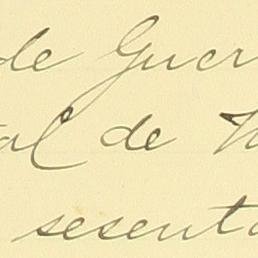 de Guer
al de
sesenta